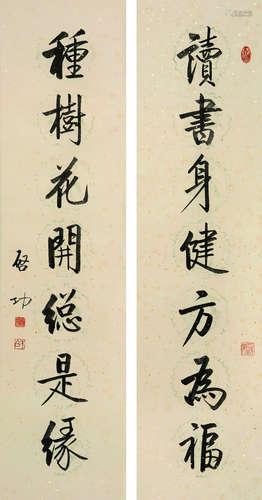 讀書身健方為福
種樹花開總是緣
啓功